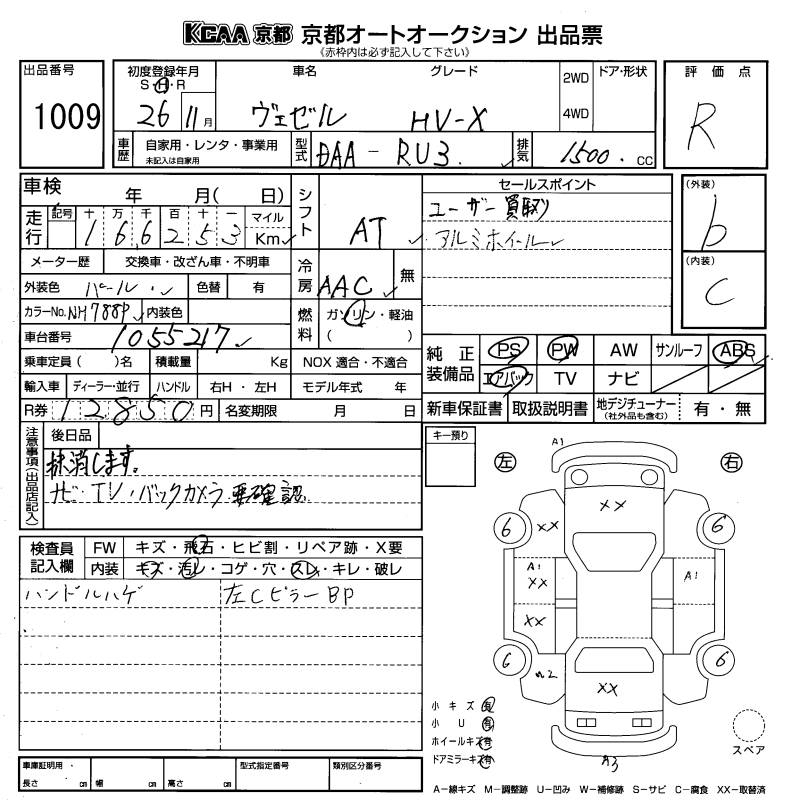 KCAA 京都 京都オートオークション 出品票
《赤枠内は必ず記入して下さい》
出品番号 初度登録年月 車名 グレード 2WD ドア・形状 評価点
S・H・R
1009 26 11月 ヴェゼル HV-X 4WD R
車歴 自家用・レンタ・事業用 型式 DAA-RU3. 排気 1500. CC
未記入は自家用
車検 年 月( 日) シフト AT セールスポイント (外装)
走行 記号 十 万 千 百 十 一 マイル ユーザー買取り b
1 6 6 2 5 3 Km アルミホイール
メーター歴 交換車・改ざん車・不明車 冷房 AAC 無 (内装)
外装色 パール 色替 有 C
カラーNo. NH788P 内装色 燃料 ガソリン・軽油
車台番号 1055217 ( )
乗車定員( )名 積載量 Kg NOX 適合・不適合 純正装備品 PS PW AW サンルーフ ABS
輸入車 ディーラー・並行 ハンドル 右H・左H モデル年式 年 エアバック TV ナビ
R券 12850円 名変期限 月 日 新車保証書 取扱説明書 地デジチューナー 有・無
(社外品も含む)
注意事項(出品店記入) 後日品 キー預り
抹消します。
ナビ・TV・バックカメラ 要確認
検査員記入欄 FW キズ・飛石・ヒビ割・リペア跡・X要
内装 キズ・汚レ・コゲ・穴・スレ・キレ・破レ
ハンドルハゲ 左CピラーBP
A1
左 右
XX
6 XX 6
A1 A1
XX
XX
6 6
XX
A3
小キズ 有
小U 有
ホイールキズ 有
ドアミラーキズ 有
スペア
車庫証明用 型式指定番号 類別区分番号
長さ cm 幅 cm 高さ cm
A-線キズ M-調整跡 U-凹み W-補修跡 S-サビ C-腐食 XX-取替済